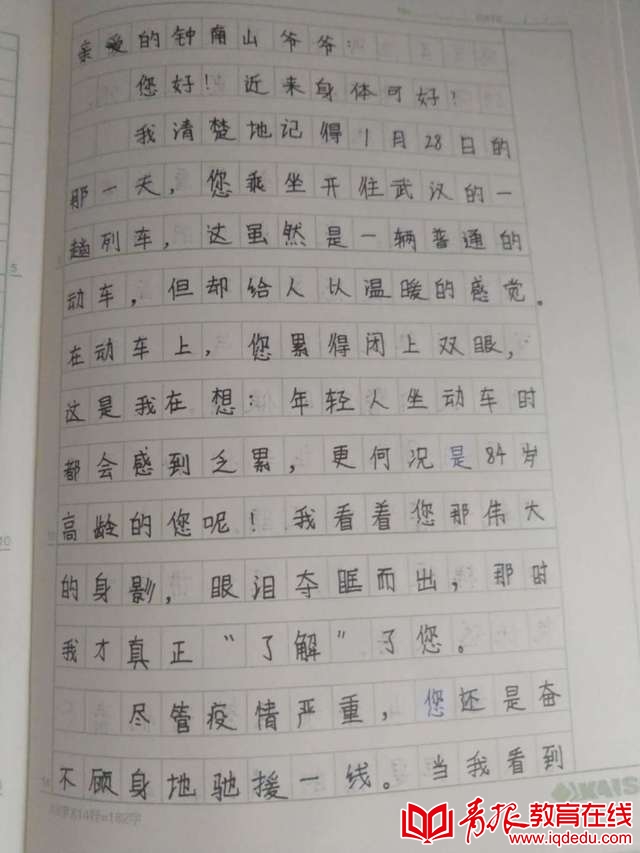 亲爱的钟南山爷爷：
您好！近来身体可好！
我清楚地记得1月28日的
那一天，您乘坐开往武汉的一
趟列车，这虽然是一辆普通的
动车，但却给人以温暖的感觉。
在动车上，您累得闭上双眼，
这是我在想：年轻人坐动车时
都会感到乏累，更何况是84岁
高龄的您呢！我看着您那伟大
的身影，眼泪夺眶而出，那时
我才真正“了解”了您。
尽管疫情严重，您还是奋
不顾身地驰援一线。当我看到
5
10
KAIS
青报教育在线
www.iqdedu.com